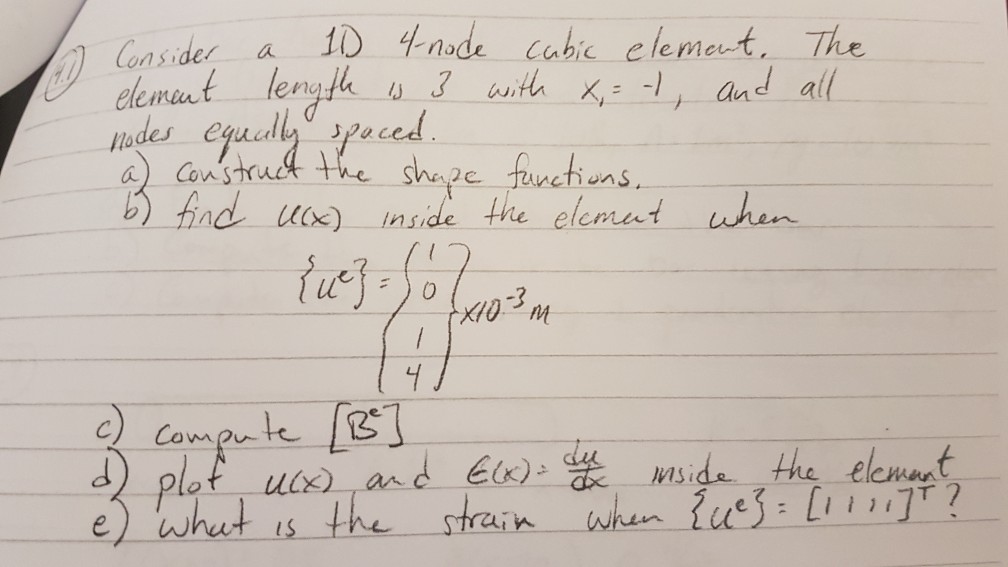 4.1) Consider a 1D 4-node cubic element. The
element length is 3 with x₁ = -1, and all
nodes equally spaced.
a) construct the shape functions.
b) find u(x) inside the element when
{uᵉ} = {1 0 1 4} ×10⁻³ m
c) compute [Bᵉ]
d) plot u(x) and ε(x) = du/dx inside the element
e) what is the strain when {uᵉ} = [1 1 1 1]ᵀ ?